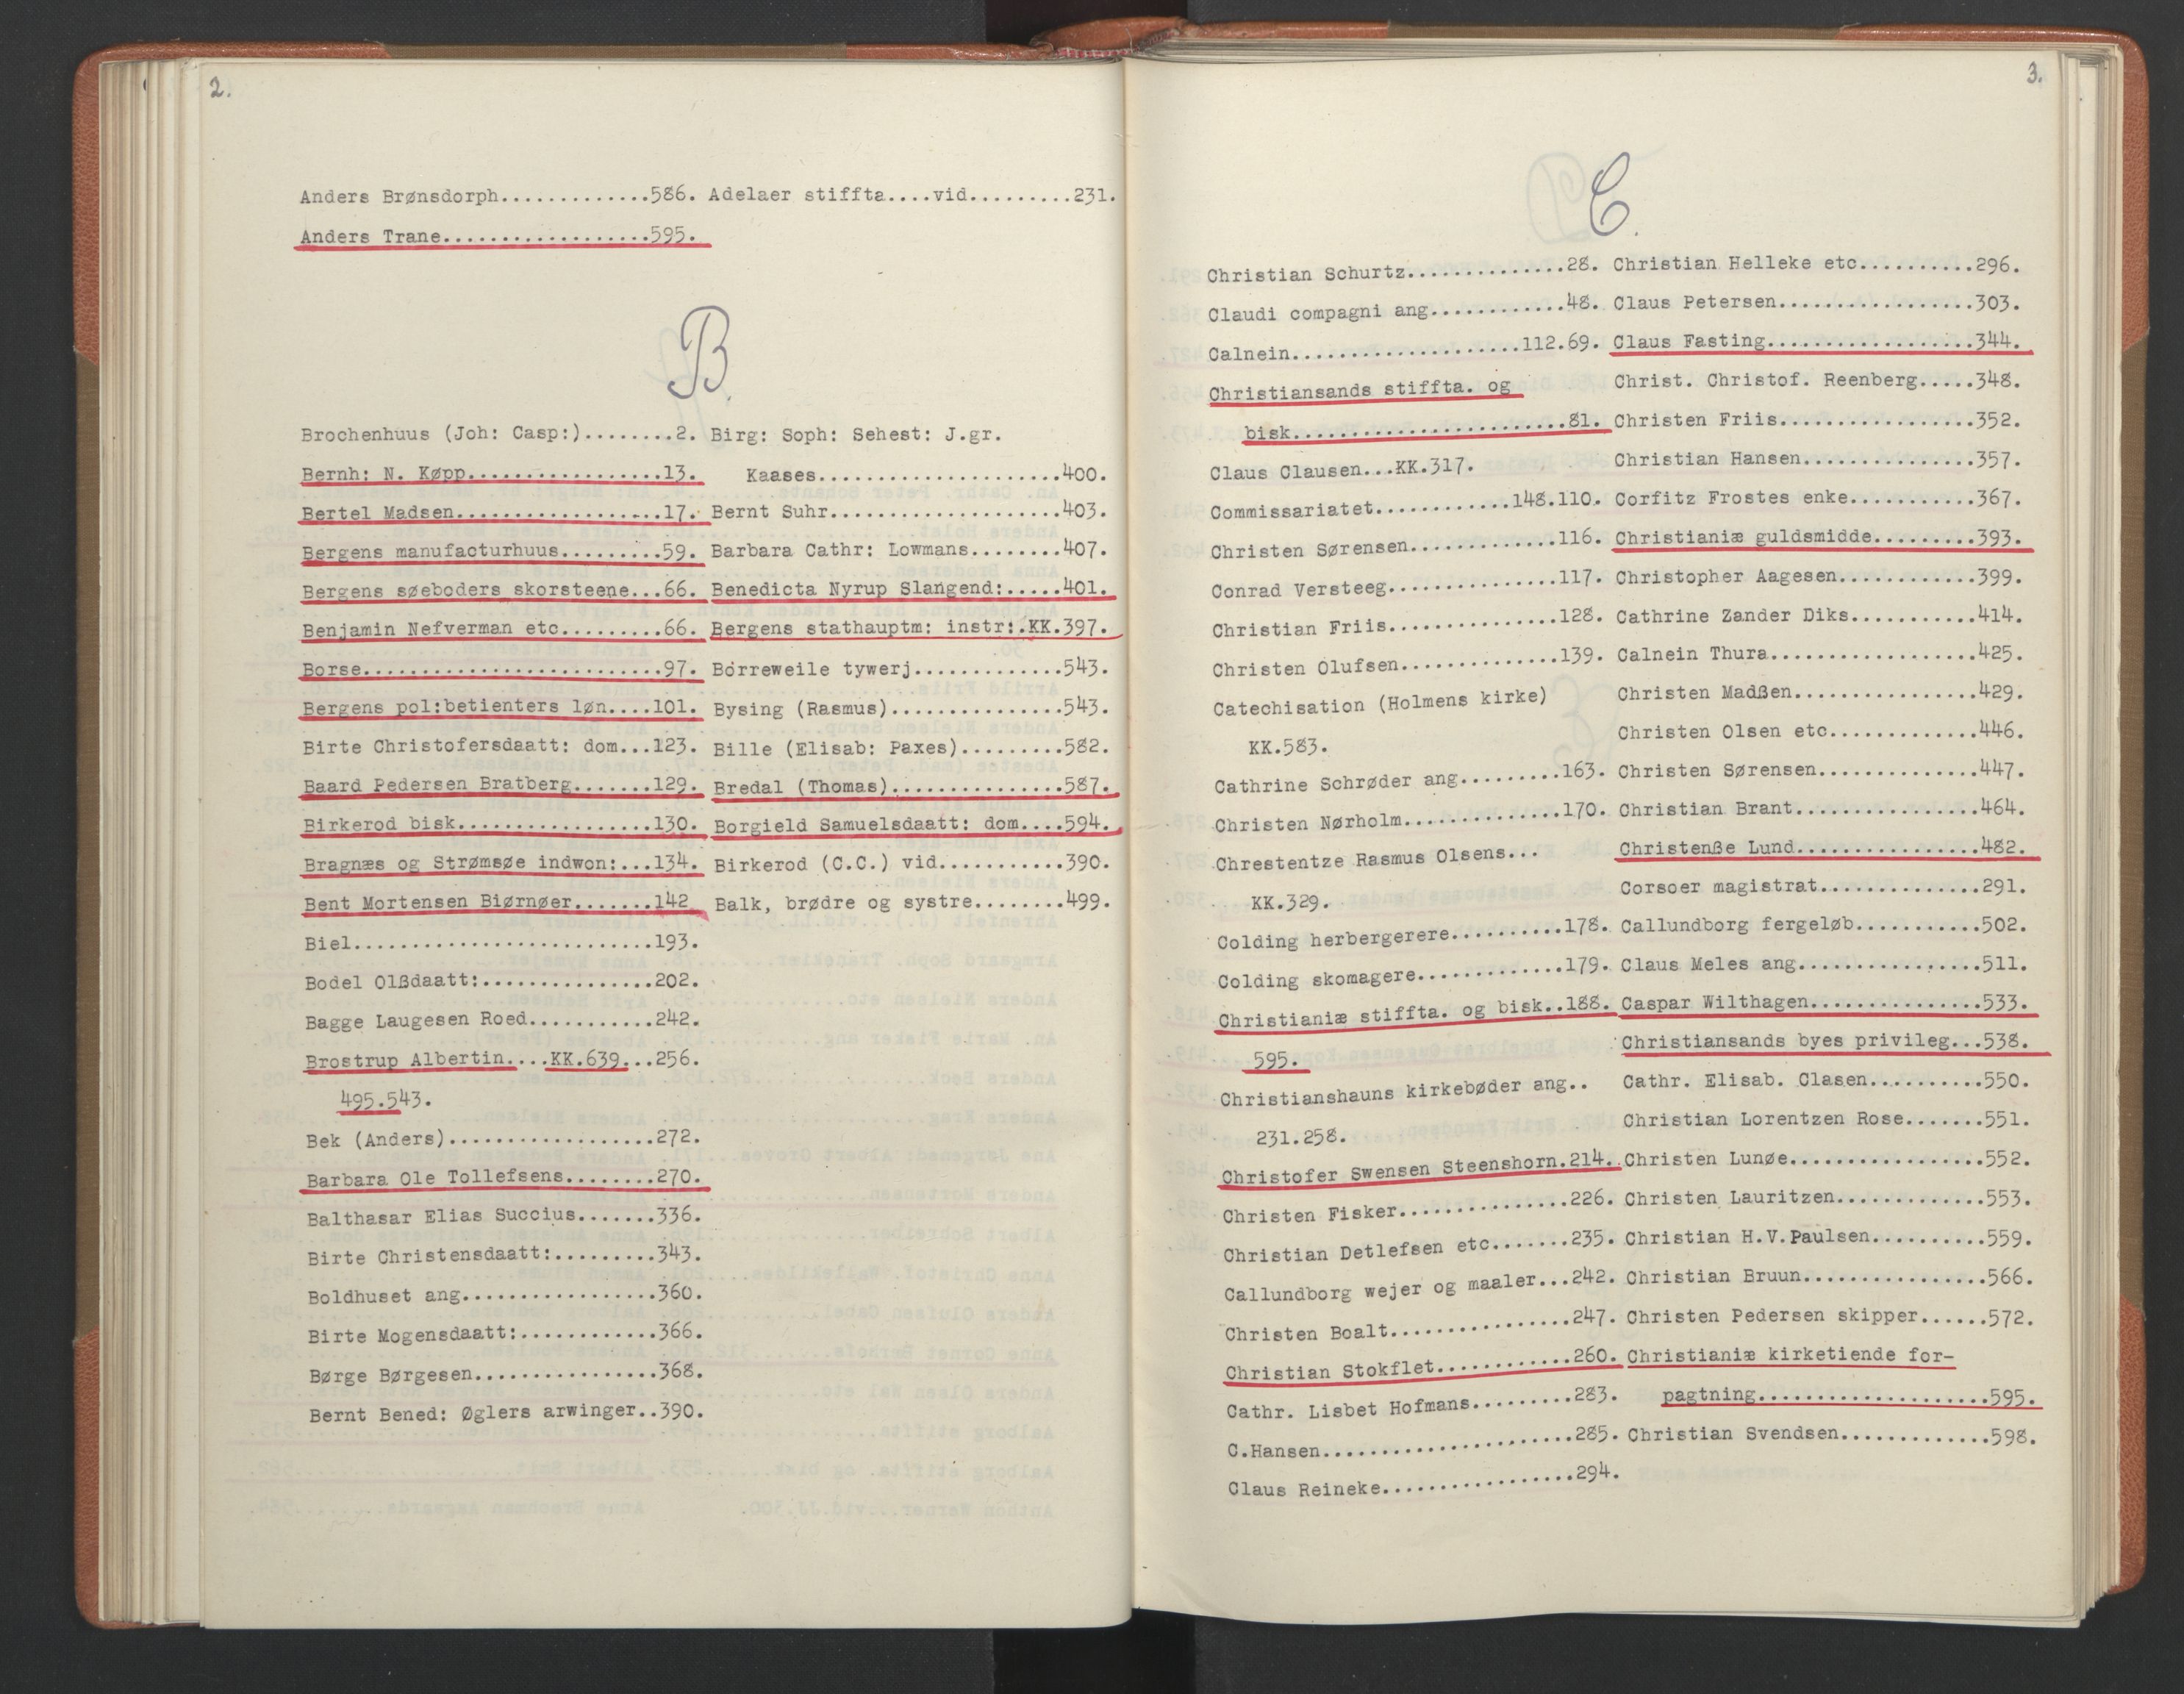 2.
Anders Brønsdorph.............586.
Anders Trane..................595.
Adelaer stiffta....vid.........231.
B.
Brochenhuus (Joh: Casp:)........2.
Bernh: N. Køpp.................13.
Bertel Madsen..................17.
Bergens manufacturhuus.........59.
Bergens søeboders skorsteene...66.
Benjamin Nefverman etc.........66.
Borse..........................97.
Bergens pol:betienters løn....101.
Birte Christofersdaatt: dom...123.
Baard Pedersen Bratberg.......129.
Birkerod bisk.................130.
Bragnæs og Strømsøe indwon:...134.
Bent Mortensen Biørnøer.......142
Biel..........................193.
Bodel Olßdaatt:...............202.
Bagge Laugesen Roed...........242.
Brostrup Albertin....KK.639...256.
495.543.
Bek (Anders)..................272.
Barbara Ole Tollefsens........270.
Balthasar Elias Succius.......336.
Birte Christensdaatt:.........343.
Boldhuset ang.................360.
Birte Mogensdaatt:............366.
Børge Børgesen................368.
Bernt Bened: Øglers arwinger..390.
Birg: Soph: Sehest: J.gr.
Kaases.....................400.
Bernt Suhr....................403.
Barbara Cathr: Lowmans........407.
Benedicta Nyrup Slangend:.....401.
Bergens stathauptm: instr:.KK.397.
Borreweile tywerj.............543.
Bysing (Rasmus)...............543.
Bille (Elisab: Paxes).........582.
Bredal (Thomas)...............587.
Borgield Samuelsdaatt: dom....594.
Birkerod (C.C.) vid...........390.
Balk, brødre og systre........499.
3.
C.
Christian Schurtz..............28.
Claudi compagni ang............48.
Calnein....................112.69.
Christiansands stiffta. og
bisk........................81.
Claus Clausen...KK.317.
Commissariatet............148.110.
Christen Sørensen.............116.
Conrad Versteeg...............117.
Christian Friis...............128.
Christen Olufsen..............139.
Catechisation (Holmens kirke)
KK.583.
Cathrine Schrøder ang.........163.
Christen Nørholm..............170.
Chrestentze Rasmus Olsens...
KK.329.
Colding herbergerere..........178.
Colding skomagere.............179.
Christianiæ stiffta. og bisk..188.
595.
Christianshauns kirkebøder ang..
231.258.
Christofer Swensen Steenshorn.214.
Christen Fisker...............226.
Christian Detlefsen etc.......235.
Callundborg wejer og maaler...242.
Christen Boalt................247.
Christian Stokflet............260.
Cathr. Lisbet Hofmans.........283.
C.Hansen......................285.
Claus Reineke.................294.
Christian Helleke etc..........296.
Claus Petersen.................303.
Claus Fasting..................344.
Christ. Christof. Reenberg.....348.
Christen Friis.................352.
Christian Hansen...............357.
Corfitz Frostes enke...........367.
Christianiæ guldsmidde.........393.
Christopher Aagesen............399.
Cathrine Zander Diks...........414.
Calnein Thura..................425.
Christen Madßen................429.
Christen Olsen etc.............446.
Christen Sørensen..............447.
Christian Brant................464.
Christenße Lund................482.
Corsoer magistrat..............291.
Callundborg fergeløb...........502.
Claus Meles ang................511.
Caspar Wilthagen...............533.
Christiansands byes privileg...538.
Cathr. Elisab. Clasen..........550.
Christian Lorentzen Rose.......551.
Christen Lunøe.................552.
Christen Lauritzen.............553.
Christian H.V.Paulsen..........559.
Christian Bruun................566.
Christen Pedersen skipper......572.
Christianiæ kirketiende for-
pagtning....................595.
Christian Svendsen.............598.